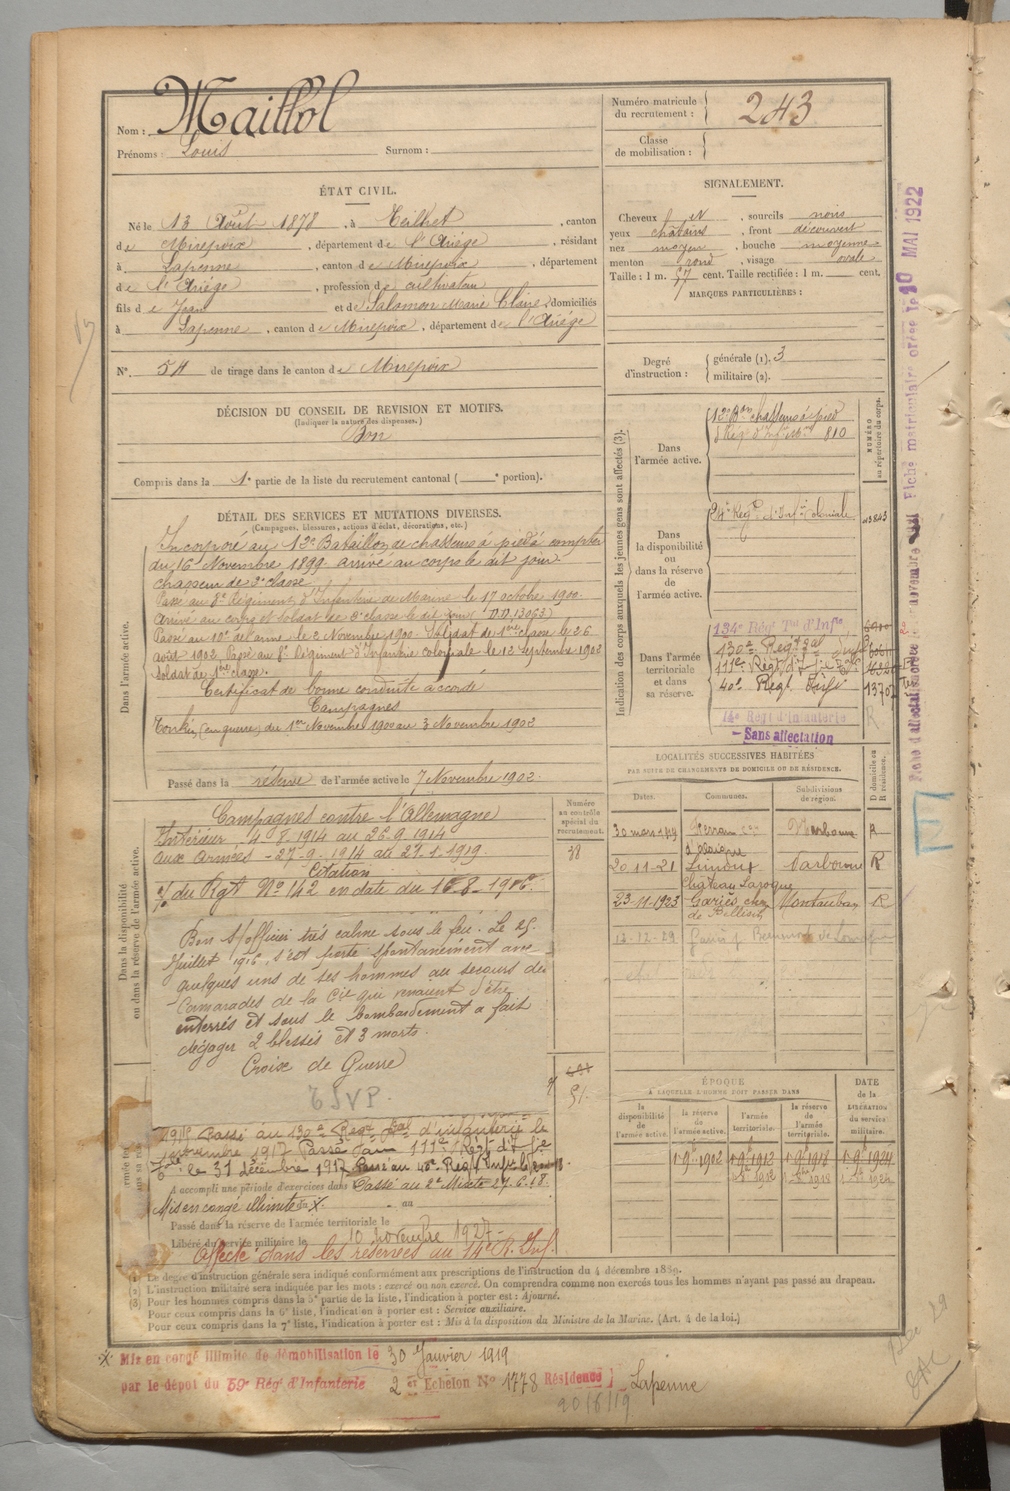 Nom : Maillol
Prénoms : Louis Surnom :
Numéro matricule du recrutement : 243
Classe de mobilisation :
ÉTAT CIVIL.
Né le 13 Août 1878, à Teilhet, canton
de Mirepoix, département de l'Ariège, résidant
à Lapenne, canton de Mirepoix, département
de l'Ariège, profession de cultivateur
fils de Jean et de Salomon Marie Claire, domiciliés
à Lapenne, canton de Mirepoix, département de l'Ariège
N° 54 de tirage dans le canton de Mirepoix
SIGNALEMENT.
Cheveux N, sourcils noirs
yeux châtains, front découvert
nez moyen, bouche moyenne
menton rond, visage ovale
Taille : 1 m. 57 cent. Taille rectifiée : 1 m. cent.
MARQUES PARTICULIÈRES :
Degré d'instruction : générale (1). 3
militaire (2).
DÉCISION DU CONSEIL DE REVISION ET MOTIFS.
(Indiquer la nature des dispenses.)
Bon
Compris dans la 1e partie de la liste du recrutement cantonal ( e portion).
DÉTAIL DES SERVICES ET MUTATIONS DIVERSES.
(Campagnes, blessures, actions d'éclat, décorations, etc.)
Dans l'armée active.
Incorporé au 12e Bataillon de chasseurs à pied à compter
du 16 Novembre 1899. arrivé au corps le dit jour
chasseur de 2e classe
Passé au 8e Régiment d'Infanterie de Marine le 17 octobre 1900.
Arrivé au corps et soldat de 2e classe le dit jour (D.D. 13063)
Passé au 10e de l'arme le 2 Novembre 1900. Soldat de 1ère classe le 26
août 1902. Passé au 8e Régiment d'Infanterie coloniale le 12 septembre 1902
Soldat de 1ère classe.
Certificat de bonne conduite accordé
Campagnes
Tonkin (en guerre) du 1er Novembre 1900 au 3 Novembre 1902
Passé dans la réserve de l'armée active le 7 Novembre 1902.
Dans la disponibilité ou dans la réserve de l'armée active.
Campagnes contre l'Allemagne
Intérieur 4-8-1914 au 26-9-1914
aux armées - 27-9-1914 au 27-1-1919.
Citation
du Rgt N° 142 en date du
Bon S/officier très calme sous le feu. Le 25.
Juillet 1916, s'est porté spontanément avec
quelques uns de ses hommes au secours de
Camarades de la Cie qui venaient d'être
enterrés et sous le bombardement a fait
dégager 2 blessés et 3 morts.
Croix de Guerre
TSVP.
Passé au 130e Régt d'infanterie le
novembre 1917 Passé au 111e Régt d'
le 31 décembre 1917 Passé au
A accompli une période d'exercices dans Passé au 2e Mixte 27.6.18.
Mis en congé illimité du X au
Passé dans la réserve de l'armée territoriale le
Libéré du service militaire le 10 novembre 1927
Affecté dans les réserves au 14e R. Inf.
Numéro au contrôle spécial du recrutement.
38
51.
Indication des corps auxquels les jeunes gens sont affectés (3).
NUMÉRO au répertoire du corps.
Dans l'armée active.
12e Bon chasseurs à pied
8 Régt d'Infie Mne 810
Dans la disponibilité ou dans la réserve de l'armée active.
24e Régt d'Infie Coloniale
Dans l'armée territoriale et dans sa réserve.
134e Régt Tal d'Infie
130e Régt
111e Régt
40e Régt Infie 13702
14e Régt d'Infanterie
Sans affectation
LOCALITÉS SUCCESSIVES HABITÉES
PAR SUITE DE CHANGEMENTS DE DOMICILE OU DE RÉSIDENCE.
Dates. Communes. Subdivisions de région. D domicile ou R résidence.
30 mars 1919 Narbonne R
20-11-21 Limoux Narbonne R
23-11-1923 Château Laroque Gariès, Montauban R
12-12-29 Beaumont de Lomagne
ÉPOQUE
À LAQUELLE L'HOMME DOIT PASSER DANS
la disponibilité de l'armée active.
la réserve de l'armée active.
l'armée territoriale.
la réserve de l'armée territoriale.
DATE de la LIBÉRATION du service militaire.
1-9bre 1902 1-9bre 1912 1-9bre 1918 1-9bre 1924
(1) Le degré d'instruction générale sera indiqué conformément aux prescriptions de l'instruction du 4 décembre 1889.
(2) L'instruction militaire sera indiquée par les mots : exercé ou non exercé. On comprendra comme non exercés tous les hommes n'ayant pas passé au drapeau.
(3) Pour les hommes compris dans la 5e partie de la liste, l'indication à porter est : Ajourné.
Pour ceux compris dans la 6e liste, l'indication à porter est : Service auxiliaire.
Pour ceux compris dans la 7e liste, l'indication à porter est : Mis à la disposition du Ministre de la Marine. (Art. 4 de la loi.)
X Mis en congé illimité de démobilisation le 30 Janvier 1919
par le dépôt du 59e Régt d'Infanterie 2e Echelon N° 1778 Résidence] Lapenne
20/6/19
Fiche matriculaire créée le 10 MAI 1922